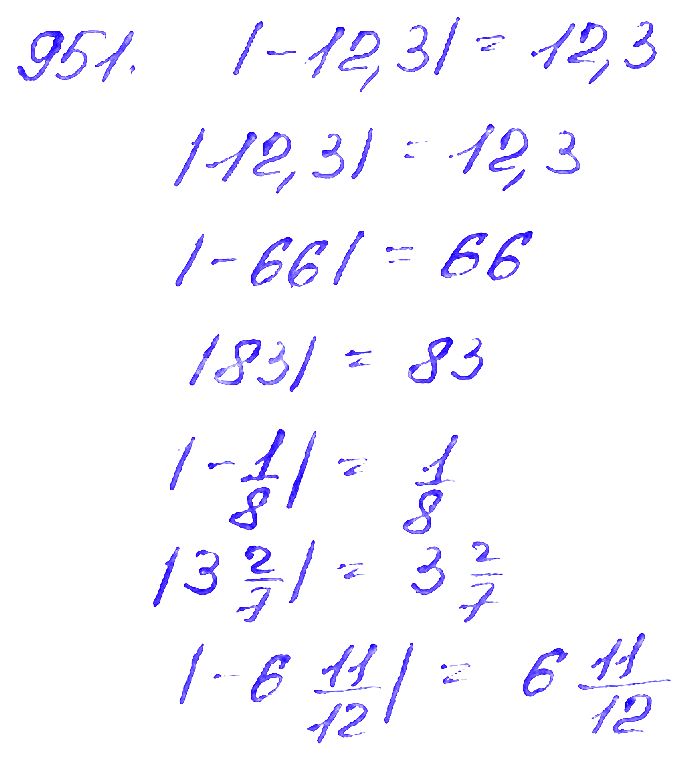 951. |-12,3| = 12,3
|12,3| = 12,3
|-66| = 66
|83| = 83
|-1/8| = 1/8
|3 2/7| = 3 2/7
|-6 11/12| = 6 11/12